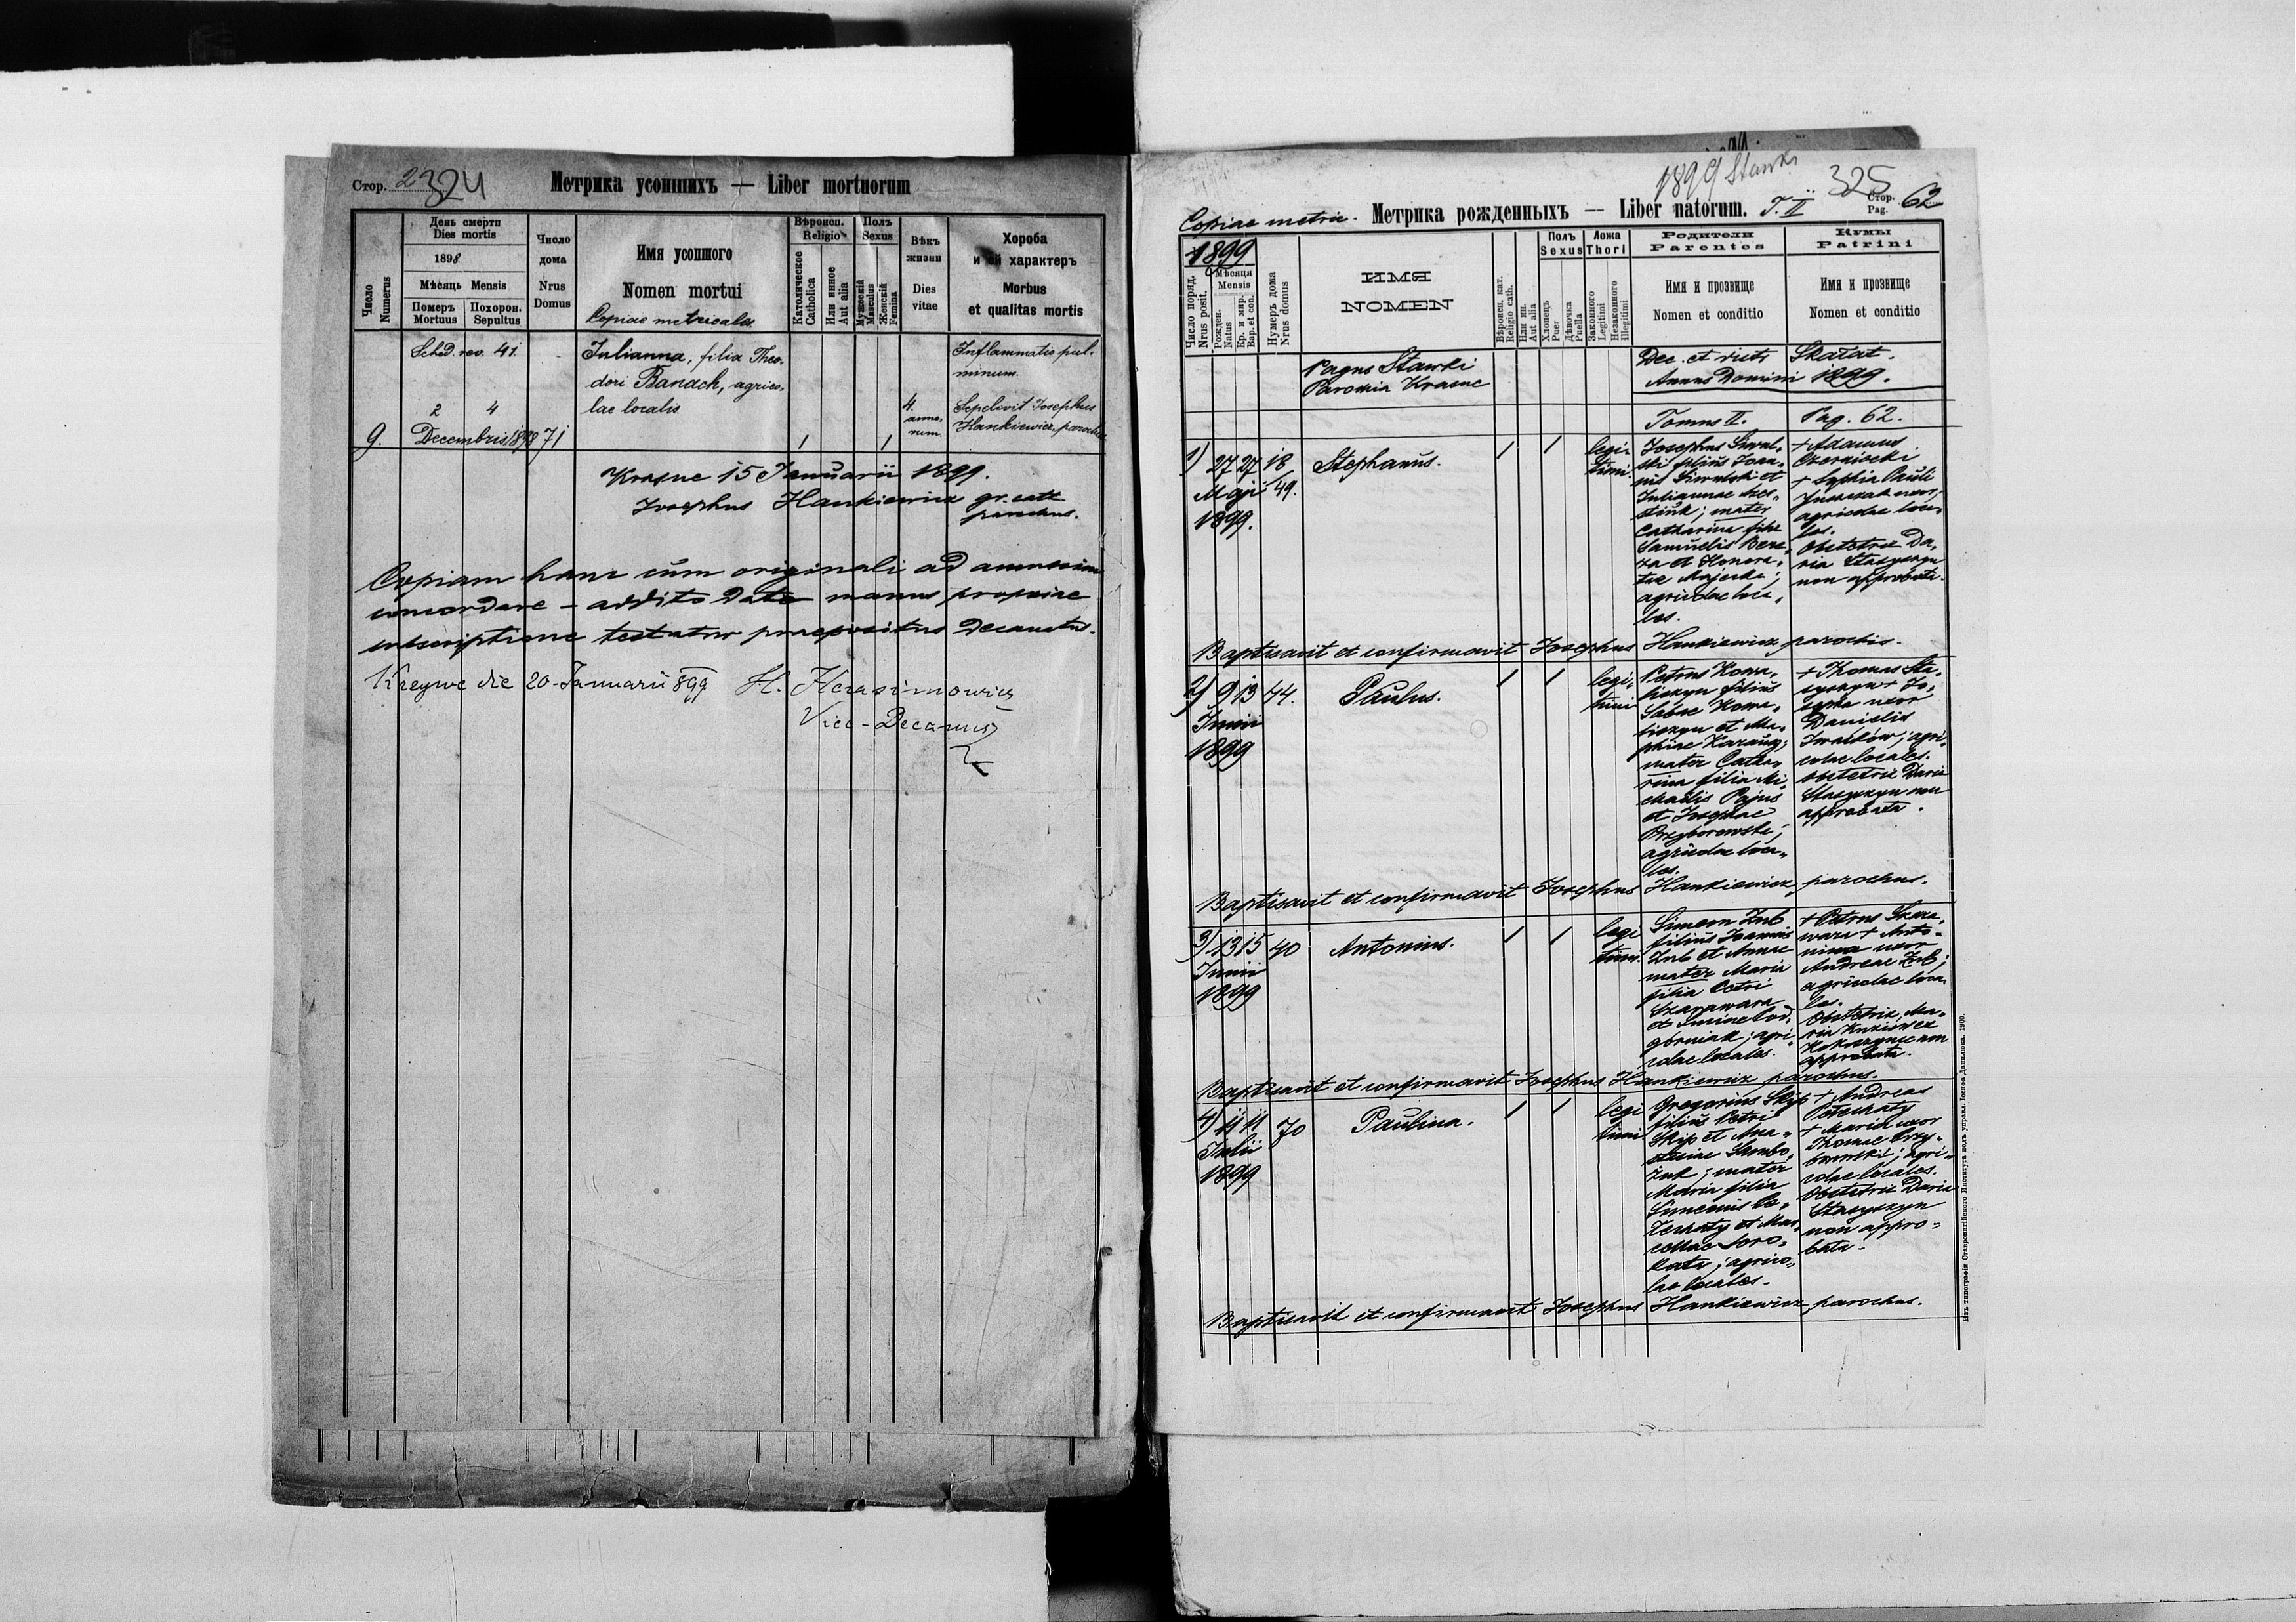 Стор. 2 324
Метрика усопшихъ — Liber mortuorum
Число
Numerus
День смерти
Dies mortis
1898.
Мѣсяць Mensis
Померъ
Mortuus
Похорон.
Sepultus
Число
дома
Nrus
Domus
Имя усопшого
Nomen mortui
Copiae metricales
Вѣроисп.
Religio
Католическое
Catholica
Или инное
Aut alia
Полъ
Sexus
Мужескій
Masculus
Женскій
Femina
Вѣкъ
жизни
Dies
vitae
Хороба
и ей характеръ
Morbus
et qualitas mortis
Sched. rev. 41.
Julianna, filia Theo-
dori Banach, agrico-
lae localis.
Inflammatio pul-
minum.
2 4
4.
anno-
rum.
Sepelivit Josephus
Hankiewicz, parochus
9. Decembris 1898 71 1 1
Krasne 15 Januarii 1899.
Josephus Hankiewicz gr. cath.
parochus.
Copiam hanc cum originali ad amussim
concordare – addito dato manus propriae
subscriptione testatur praepositus Decanatus.
die 20 Januarii 899 H. Herasimowicz
Vice-Decanus
1899 Stawki
325
Copiae metric. Метрика рожденныхъ — Liber natorum. T. II
Стор.
Pag. 62
1899
Число поряд.
Nrus posit.
Мѣсяця
Mensis
Рожден.
Natus
Кр. и мѵр.
Bap. et con.
Нумеръ дома
Nrus domus
ИМЯ
NOMEN
Вѣроисп. кат.
Religio cath.
Или ин.
Aut alia
Полъ
Sexus
Хлопець
Puer
Дѣвочка
Puella
Ложа
Thori
Законного
Legitimi
Незаконного
Illegitimi
Родители
Parentes
Имя и прозвище
Nomen et conditio
Кумы
Patrini
Имя и прозвище
Nomen et conditio
Pagus Stawki
Parochia Krasne
Dec. et distr. Skałat.
Annus Domini 1899.
Tomus II. Pag. 62.
1) 27 27 18/49.
Maji
1899.
Stephanus.
legi-
timi.
Josephus
filius Joan-
nis et
Juliannae
mater
Catharina filia
Samuelis Bere-
za et Honora-
tae
agricolae loca-
les.
+ Adamus
Czerniecki
+ Sophia Pauli
uxor,
agricolae loca-
les.
Obstetrix Da-
ria Stasyszyn
non approbata.
Baptisavit et confirmavit Josephus Hankiewicz, parochus.
2) 9 13 44.
Junii
1899
Paulus.
legi-
timi
Petrus Kowa-
liszyn filius
Sabae Kowa-
liszyn et
mater Catha-
rina filia Mi-
chaelis Pajuś
et Josephae
Przyborowska;
agricolae loca-
les.
+ Thomas Sta-
syszyn + Jo-
sepha uxor
Danielis
Iwaśków; agri-
colae locales.
Obstetrix Daria
Stasyszyn non
approbata.
Baptisavit et confirmavit Josephus Hankiewicz, parochus.
3) 13 15 40
Junii
1899
Antonius.
legi
timi.
Simeon Zub
filius Joannis
Zub et Annae
mater Maria
filia Petri
Szarawara
et Luciae Pod-
górniak; agri-
colae locales.
+ Petrus Szara-
wara + Anto-
nina uxor
Andreae Zub;
agricolae loca-
les.
Obstetrix, Ma-
ria
non
approbata.
Baptisavit et confirmavit Josephus Hankiewicz parochus.
4) 11 11 70
Julii
1899
Paulina.
legi
timi
Gregorius Skip
filius Petri
Skip et Ana-
stasiae
mater
Maria filia
Simeonis Pe-
techaty et Mar-
cellae Soro-
kata; agrico-
lae locales.
+ Andreas
Petechaty
+ Maria uxor
Thomae Przy-
borowski; agri-
colae locales.
Obstetrix Daria
Stasyszyn
non appro-
bata.
Baptisavit et confirmavit Josephus Hankiewicz, parochus.
Изъ типографіи Ставропигійского Института подъ управл. Іосифа Данилюка. 1900.